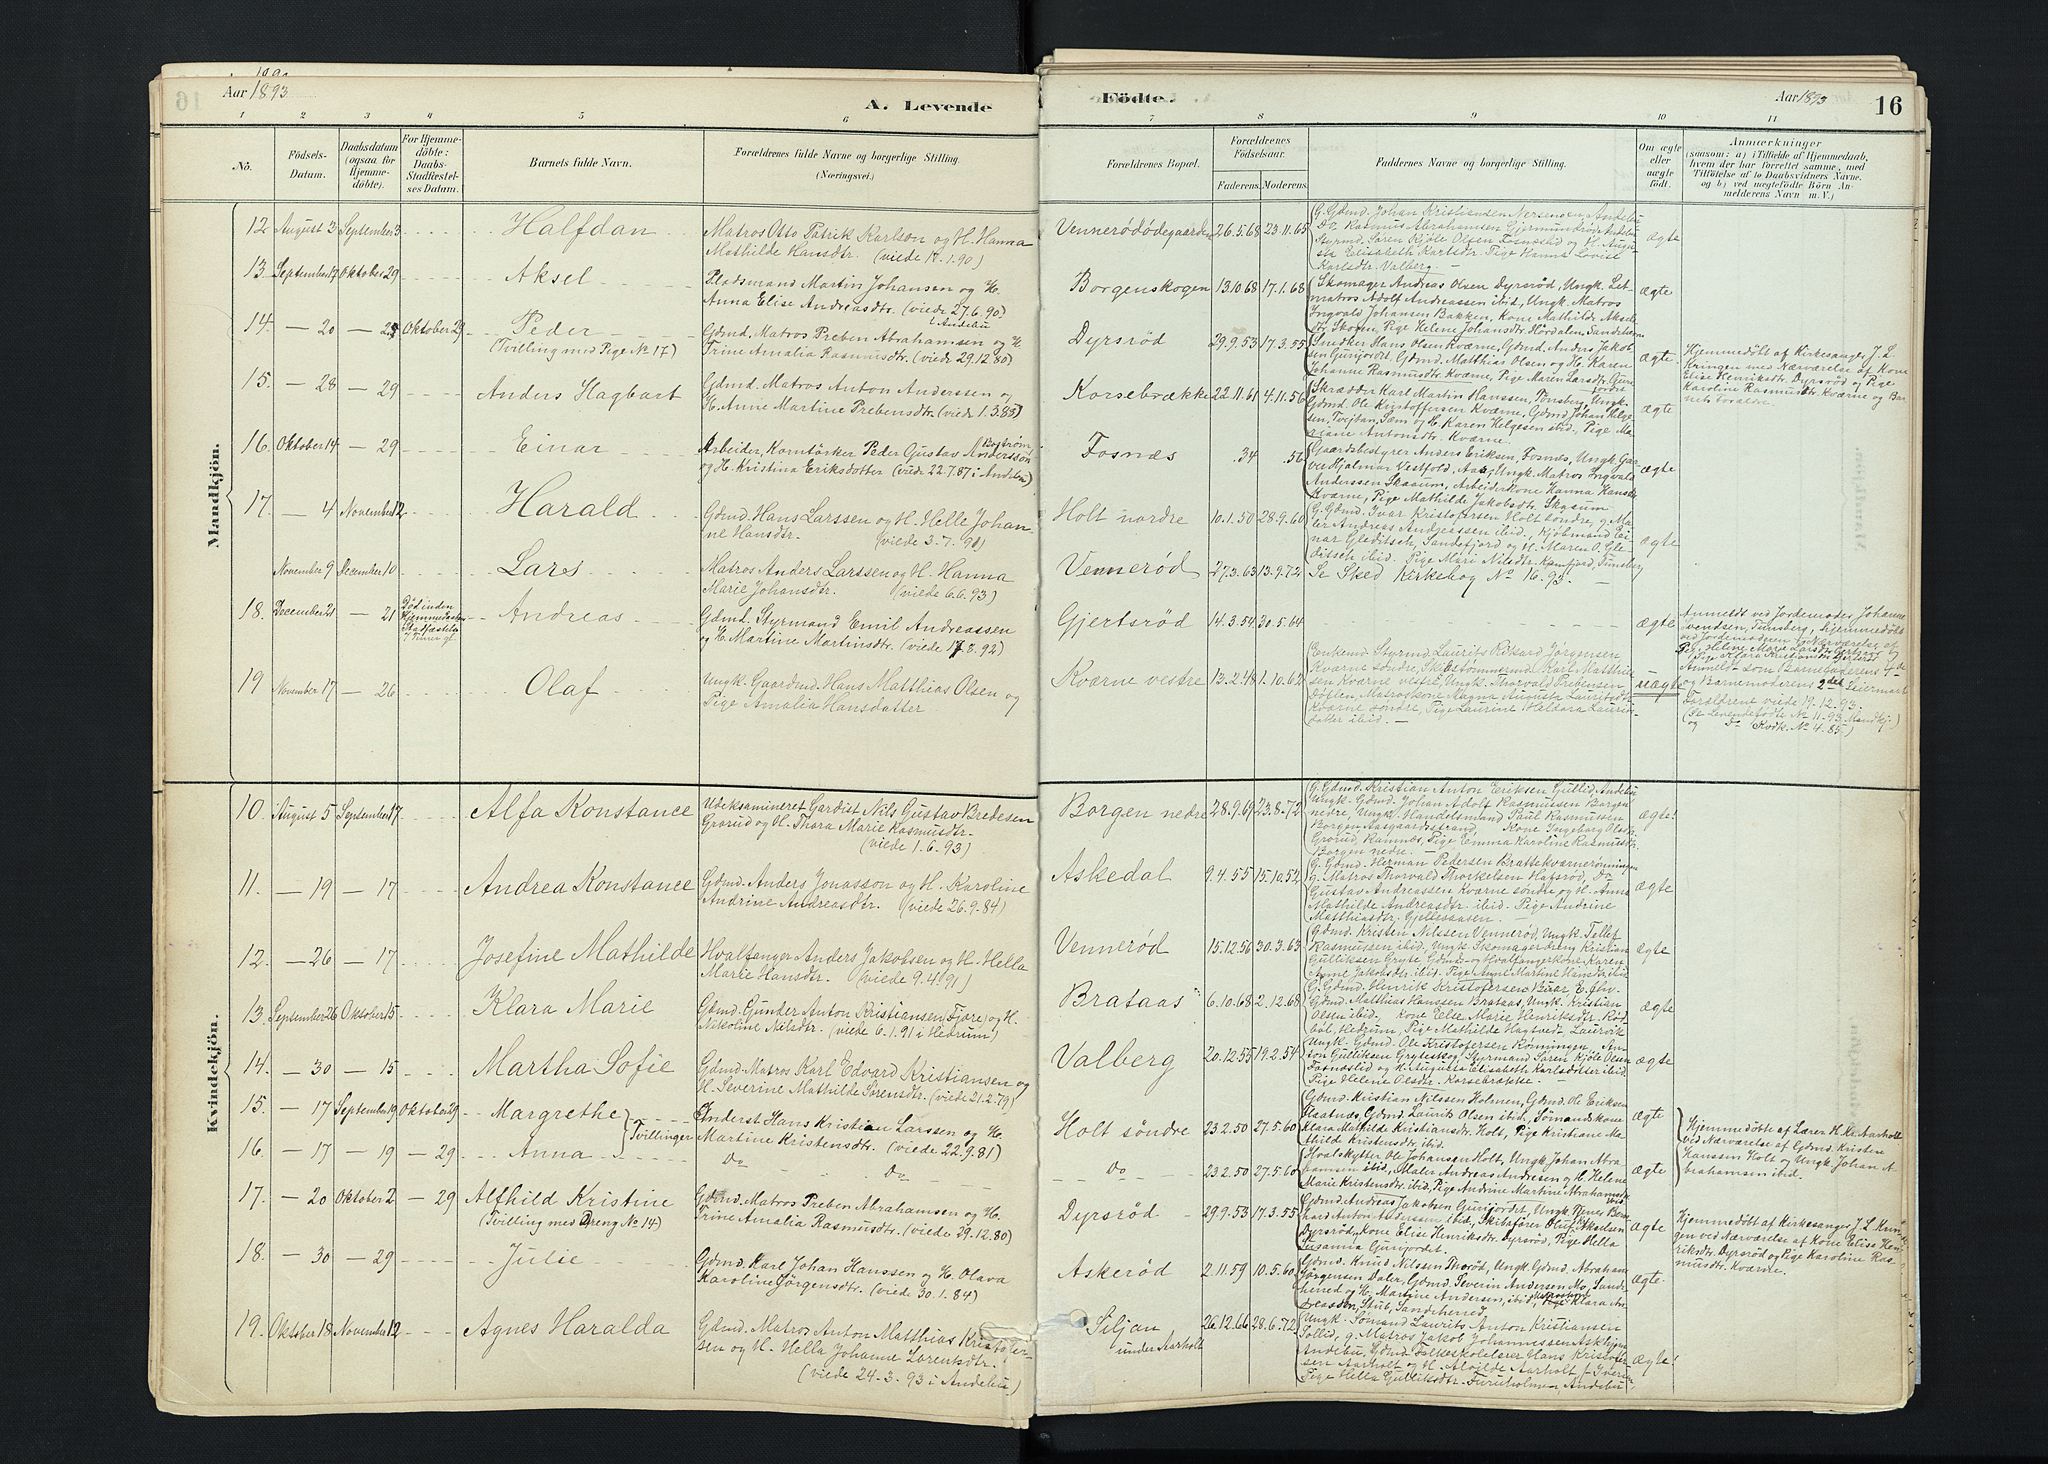 Aar 1893
A. Levende
Födte.
Aar 1893
16
1 2 3 4 5 6 7 8 9 10 11
No.
Födsels-
Datum.
Daabsdatum
(ogsaa for
Hjemme-
döbte).
For Hjemme-
döbte:
Daabs-
Stadfæstel-
ses Datum.
Barnets fulde Navn.
Forældrenes fulde Navne og borgerlige Stilling
(Næringsvei.)
Forældrenes Bopæl.
Forældrenes
Födselsaar.
Faderens. Moderens.
Faddernes Navne og borgerlige Stilling.
Om ægte
eller
uægte
födt.
Anmærkninger
(saasom: a) i Tilfælde af Hjemmedaab,
hvem der har forrettet samme, med
Tilföielse af to Daabsvidners Navne.
og b) ved uægtefödte Börn An-
melderens Navn m. V.)
Mandkjön.
12 August 3 September 3 Halfdan Matros Otto Patrik Karlson og H. Hanna
Mathilde Hansdtr. (viede 17.1.90)
Vennerødødegaarden 26.5.68 23.11.65
G. Gdmd. Johan Kristiansen
Do Rasmus Abrahamsen
Styrmd. Søren Kjöle Olsen Fosnæslid og H. Augu-
sta Elisabeth Karlsdtr. Pige Hanna Lovise
Karlsdtr. Valberg.
ægte
13. September 17 Oktober 29 Aksel Pladsmand Martin Johansen og H.
Anna Elise Andreasdtr (viede 27.6.90)
i Andebu
Borgenskogen 13.10.68 17.1.68
Skomager Andreas Olsen Dyrsrød, Ungk. Let-
matros Adolf Andreassen ibid, Ungk. Matros
Ingvald Johansen Bakken, Kone Mathilde Aksels-
dtr. Skorge, Pige Helene Johansdtr. Hördalen, Sandeherred
ægte
14. — 20 — 23 Oktober 29 Peder
(Tvilling med Pige No 17)
Gdmd. Matros Preben Abrahamsen og H.
Trine Amalia Rasmusdtr. (viede 29.12.80)
Dyrsrød 29.9.53 17.3.55
Snedker Hans Olsen Kværne, Gdmd. Anders Jakob-
sen Gunjordet, Gdmd. Matthias Olsen og H. Karen
Johanne Rasmusdtr. Kværne, Pige Maren Larsdtr. Gun-
jordet
ægte
Hjemmedöbt af Kirkesanger J. L.
Kringen med Nærværelse af Kone
Elise Henriksdtr. Dyrsrød og Pige
Karoline Rasmusdtr. Kværne og Bar-
nets Forældre.
15. — 28 — 29 Anders Hagbart Gdmd. Matros Anton Anderssen og
H. Anne Martine Prebensdtr. (viede 1.3.85)
Korsebrække 22.11.61 4.11.56
Skrædder Karl Martin Hanssen, Tønsberg, Ungk.
Gdmd. Ole Kristoffersen Kværne, Gdmd. Johan Helge-
sen, Tveitan, Sæm og H. Karen Helgesen ibid. Pige Ma-
riane Antonsdtr. Kværne.
ægte
16. Oktober 14 — 29 Einar Arbeider, Korntörker Peder Gustav Andersson
Boström
og H. Kristina Eriksdotter (viede 22.7.87 i Andebu)
Fosnæs .34 .56
Gaardsbestyrer Anders Eriksen, Fosnæs, Ungk. Gar-
ver Hjalmar Vestfold, Aas, Ungk. Matros Ingvald
Anderssen Skaaum, Arbeiderkone Hanna Hansdtr.
Kværne, Pige Mathilde Jakobsdtr. Skaaum
ægte
17. — 4 November 12 Harald Gdmd. Hans Larssen og H. Helle Johan-
ne Hansdtr. (viede 3.7.90)
Holt nordre 10.1.50 28.9.60
G. Gdmd. Ivar Kristofersen Holt søndre, g. Ma-
ler Andreas Andreassen ibid., Kjøbmand Ei-
nar Gleditsch, Sandefjord og H. Maren O. Gle-
ditsch ibid. Pige Mari Nilsdtr. Kamfjord, Tunsberg
ægte
November 9 December 10 Lars Matros Anders Larssen og H. Hanna
Marie Johansdtr. (viede 6.6.93)
Vennerød 27.3.63 13.9.72 Se Sked Kirkebog No 16.93.
18. December 21 — 21 Død inden
Hjemmedaabens
Stadfæstelse
Andreas Gdmd. Styrmand Emil Andreassen
og H. Martine Martinsdtr. (viede 17.8.92)
Gjertsrød 14.3.54 30.5.64 ægte
Anmeldt ved Jordemoder Johanne
Svendsen, Tunsberg, hjemmedöbt
ved Jordemoderen i Nærværelse af
19 November 17 — 26 Olaf Ungk. Gaardmd. Hans Matthias Olsen og
Pige Amalia Hansdatter
Kværne vestre 13.2.48 1.10.62
Enkemd. Styrmd. Laurits Rikard Jørgensen
Kværne søndre, Skibstømmermd. Karl Matthi-
sen Kværne vestre, Ungk. Thorvald Prebensen
Döflen, Matroskone Magna Augusta Lauritsdtr.
Kværne søndre, Pige Laurine Heldora Laurits-
datter ibid.
uægte
Anmeldt som Barnefaderens 1ste
og Barnemoderens 2det Leiermaal
Forældrene viede 19.12.93.
(Se Levendefødte No 11-93 Mandkj.
og Do Kvdk. No 4.85)
Kvindekjön.
10. August 5 September 17 Alfa Konstance Udeksamineret Gardist Nils Gustav Bredesen
Grorud og H. Thora Marie Rasmusdtr.
(viede 1.6.93)
Borgen nedre 28.9.69 23.8.72
G. Gdmd. Kristian Anton Eriksen Gullid, Andebu
Ungk. Gdmd. Johan Adolf Rasmussen Borgen
nedre, Ungk. Handelsmand Paul Rasmussen
Borgen Aasgaardsstrand, Kone Ingeborg Olsdtr.
Grorud, Ramnes, Pige Emma Karoline Rasmusdtr.
Borgen nedre.
ægte!
11. — 19 — 17 Andrea Konstance Gdmd. Anders Jonasson og H. Karoline
Andrine Andreasdtr. (viede 26.9.84)
Askedal 9.4.55 15.10.52
G. Gdmd. Herman Pedersen Brattekværnerønningen
g. Matros Thorvald Thorkelsen Hafsrød, Do
Gustav Andreassen Kværne søndre og H. Anna
Mathilde Andreasdtr. ibid. Pige Andrine
Matthiasdtr. Gjellesaasen.
ægte
12. — 26 — 17 Josefine Mathilde Hvalfanger Anders Jakobsen og H. Hella
Marie Hansdtr. (viede 9.4.91)
Vennerød 15.12.56 30.3.63
Gdmd. Kristen Nilssen Vennerød, Ungk. Tellef
Rasmussen ibid. Ungk. Skomagerdreng Kristian
Gulliksen Gryte, Gdmd.- og Hvalfangerkone Karen
Anne Jakobsdtr. ibid. Pige Anne Martine Hansdtr. ibid
ægte
13. September 26 Oktober 15 Klara Marie Gdmd. Gunder Anton Kristiansen Fjære, og H.
Nikoline Nilsdtr. (viede 6.1.91 i Hedrum)
Brataas 6.10.68 2.12.68
G. Gdmd. Henrik Kristofersen Buar
Gdmd. Matthias Hanssen Brataas, Ungk. Kristian
Olsen ibid. Kone Else Marie Henriksdtr. Rød-
bøl, Hedrum, Pige Mathilde Hagtvedt, Laurvik
ægte
14. — 30 — 15 Martha Sofie Gdmd. Matros Karl Edvard Kristiansen og
H. Severine Mathilde Sørensdtr. (viede 21.2.79)
Valberg 20.12.55 19.2.54
Ungk. Gdmd. Ole Kristofersen Rønningen, An-
ton Gulliksen Gryteskog, Styrmand Søren Kjöle Olsen
Fosnæslid og H. Augusta Elisabeth Karlsdøtter ibid
Pige Helene Olsdtr. Korsebrække.
ægte
15. — 17 September 19 Oktober 29 Margrethe
Tvillinger
Inderst Hans Kristian Larssen og H.
Martine Kristensdtr. (viede 22.9.81)
Holt söndre 23.2.50 27.5.60
Gdmd. Kristian Nilssen Holmen, Gdmd. Ole Eriksen
Slaatnes, Gdmd. Laurits Olsen ibid, Sømandskone
Klara Mathilde Kristiansdtr. Holt, Pige Kristiane Ma-
thilde Kristensdtr. ibid.
ægte
Hjemmedöbt af Lærer H. Kr. Aarholt
ved Nærværelse af Gdmd. Kristen
Hanssen Holt og Ungk. Johan A-
brahamsen ibid.
16. — 17 — 19 — 29 Anna Do Do
Do 23.2.50 27.5.60
Hvalskytter Ole Johansen Holt, Ungk. Johan Abra-
hamsen ibid, Maler Andreas Andresen og H. Helene
Marie Kristensdtr. ibid, Pige Andrine Martine Abrahamsdtr.
ægte
17. — 20 Oktober 2 — 29 Alfhild Kristine
(Tvilling med Dreng No 14)
Gdmd. Matros Preben Abrahamsen og H.
Trine Amalia Rasmusdtr. (viede 29.12.80)
Dyrsrød 29.9.53 17.3.55
Gdmd. Andreas Jakobsen Gunjordet, Ungk.
Anton Andersen ibid, Skibsfører Oluf Akselsen
Dyrsrød, Kone Elise Henriksdtr. Dyrsrød, Pige Hella
Susanna Gunjordet.
ægte
Hjemmedöbt af Kirkesanger J. L. Krin-
gen ved Nærværelse af Kone Elise Hen-
riksdtr. Dyrsrød og Pige Karoline Ras-
musdtr. Kværne.
18. — 30 — 29 Julie Gdmd. Karl Johan Hanssen og H. Olava
Karoline Jørgensdtr. (viede 30.1.84)
Askerød 2.11.59 10.5.60
Gdmd. Knus Nilssen Thorød, Ungk. Gdmd. Abraham
Jørgensen Daler, Gdmd. Severin Andersen Mo, Sande-
herred og H. Martine Andersen, ibid, Pige Klara An-
dreasdtr. Skub, Sandeherred.
ægte
19. Oktober 18 November 12 Agnes Haralda Gdmd. Matros Anton Matthias Kristofer-
sen og H. Hella Johanne Lorentsdtr.
(viede 24.3.93 i Andebu)
Siljan
under Aarholt
26.12.66 28.6.72
Ungk. Sømand Laurits Anton Kristiansen
Sollid, g. Matros Jakob Johannessen Askhjem
Andebu, Gdmd. Folkeskolelærer Hans Kristofer-
sen Aarholt og H. Alvilde Aarholt f. Iversen,
Pige Hella Gulliksdtr. Furuholmen, Andebu
ægte!